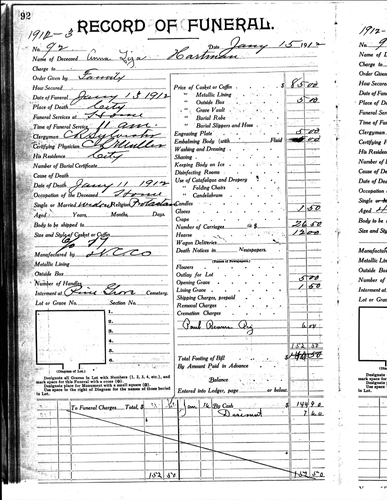 92
1912-3
RECORD OF FUNERAL.
No. 92 Date Jany 15 1912
Name of Deceased Anna Liza Hartman
Charge to
Order Given by Family
How Secured
Date of Funeral Jany 13 1912
Place of Death City
Funeral Services at Home
Time of Funeral Service 11 am.
Clergyman
Certifying Physician
His Residence City
Number of Burial Certificate
Cause of Death
Date of Death Jany 11 1912
Occupation of the Deceased Home
Single or Married Widow Religion Protestant
Aged Years, Months, Days.
Body to be shipped to
Size and Style of Casket or Coffin
Manufactured by
Metallic Lining
Outside Box
Number of Handles
Interment at Pine Grove Cemetery.
Lot or Grave No. Section No.
1
2
3
4
5
(Diagram of Lot.)
Designate all Graves in Lot with Numbers (1, 2, 3, 4, etc.), and
mark space for this Funeral with a cross
Designate place for Monument with a small square
Use space to the right of Diagram for the names of those buried
in Lot.
Price of Casket or Coffin $ 85 00
" Metallic Lining
" Outside Box 5 00
" Grave Vault
" Burial Robe
" Burial Slippers and Hose
Engraving Plate 5 00
Embalming Body (with Fluid 00
Washing and Dressing
Shaving
Keeping Body on Ice
Disinfecting Rooms
Use of Catafalque and Drapery
" Folding Chairs
" Candelabrum
Candles
Gloves 1 50
Crape
Number of Carriages @ $ 26 50
12 00
Wagon Deliveries
Death Notices in Newspapers.
(Names of Newspapers.)
Flowers
Outlay for Lot
Opening Grave 5 00
Lining Grave 1 50
Shipping Charges, prepaid
Removal Charges
Cremation Charges
6 00
152 50
Total Footing of Bill
By Amount Paid in Advance
Balance
Entered into Ledger, page or below.
To Funeral Charges Total, $ Jan 16 By Cash $ 144 90
Discount 7 60
152 50 152 50